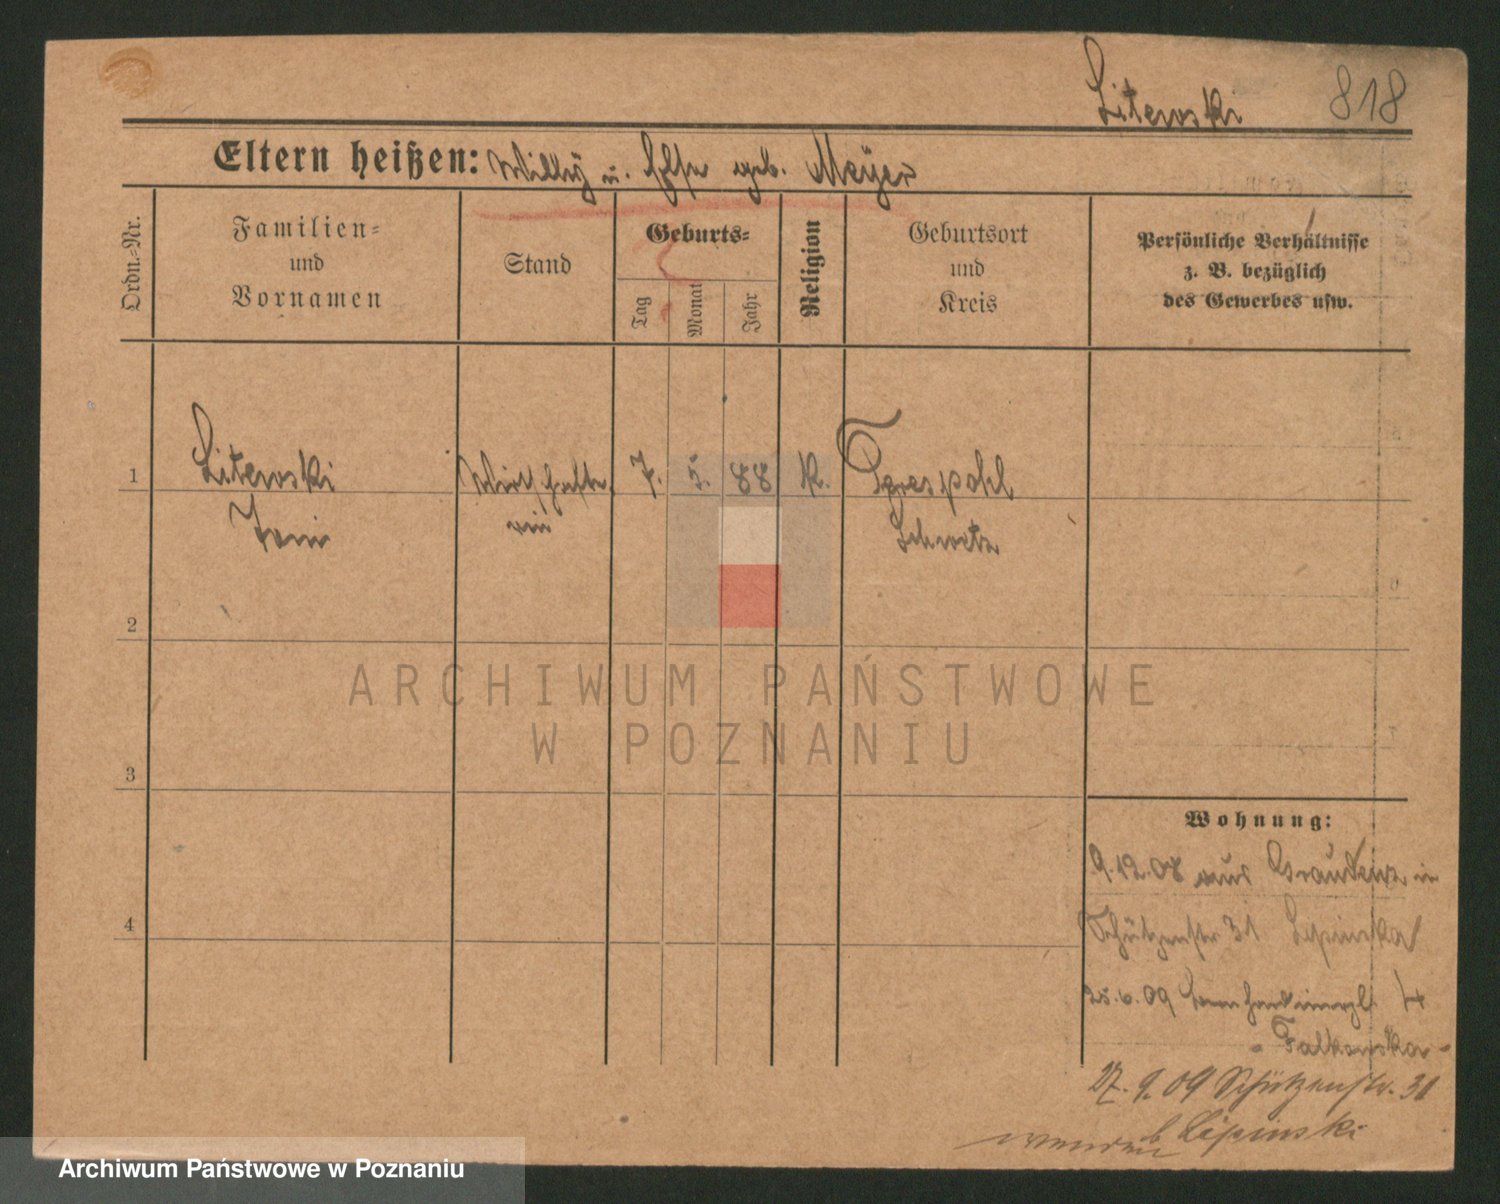 Litewski 818
Eltern heißen: Willy u. geb. Meyer
Ordn.-Nr.
Familien-
und
Vornamen
Stand
Geburts-
Tag
Monat
Jahr
Religion
Geburtsort
und
Kreis
Persönliche Verhältnisse
z. B. bezüglich
des Gewerbes usw.
1
Litewski Wirtschafte 7. 5. 88 K.
rin Schwetz
2
3
4
Wohnung:
9.12.08 aus Graudenz in
Schützenstr 31 Lipinska
25.6.09 4
- Falkowska -
27.9.09 Schützenstr. 31
Lipinski
ARCHIWUM PAŃSTWOWE
W POZNANIU
Archiwum Państwowe w Poznaniu